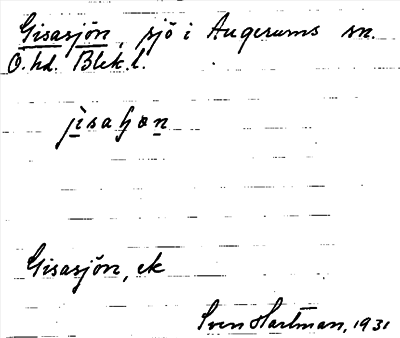 Gisasjön, sjö i Augerums sn.
Ö. hd. Blek. l.
jìsaɧon
Gisasjön, ek
Sven Hartman, 1931